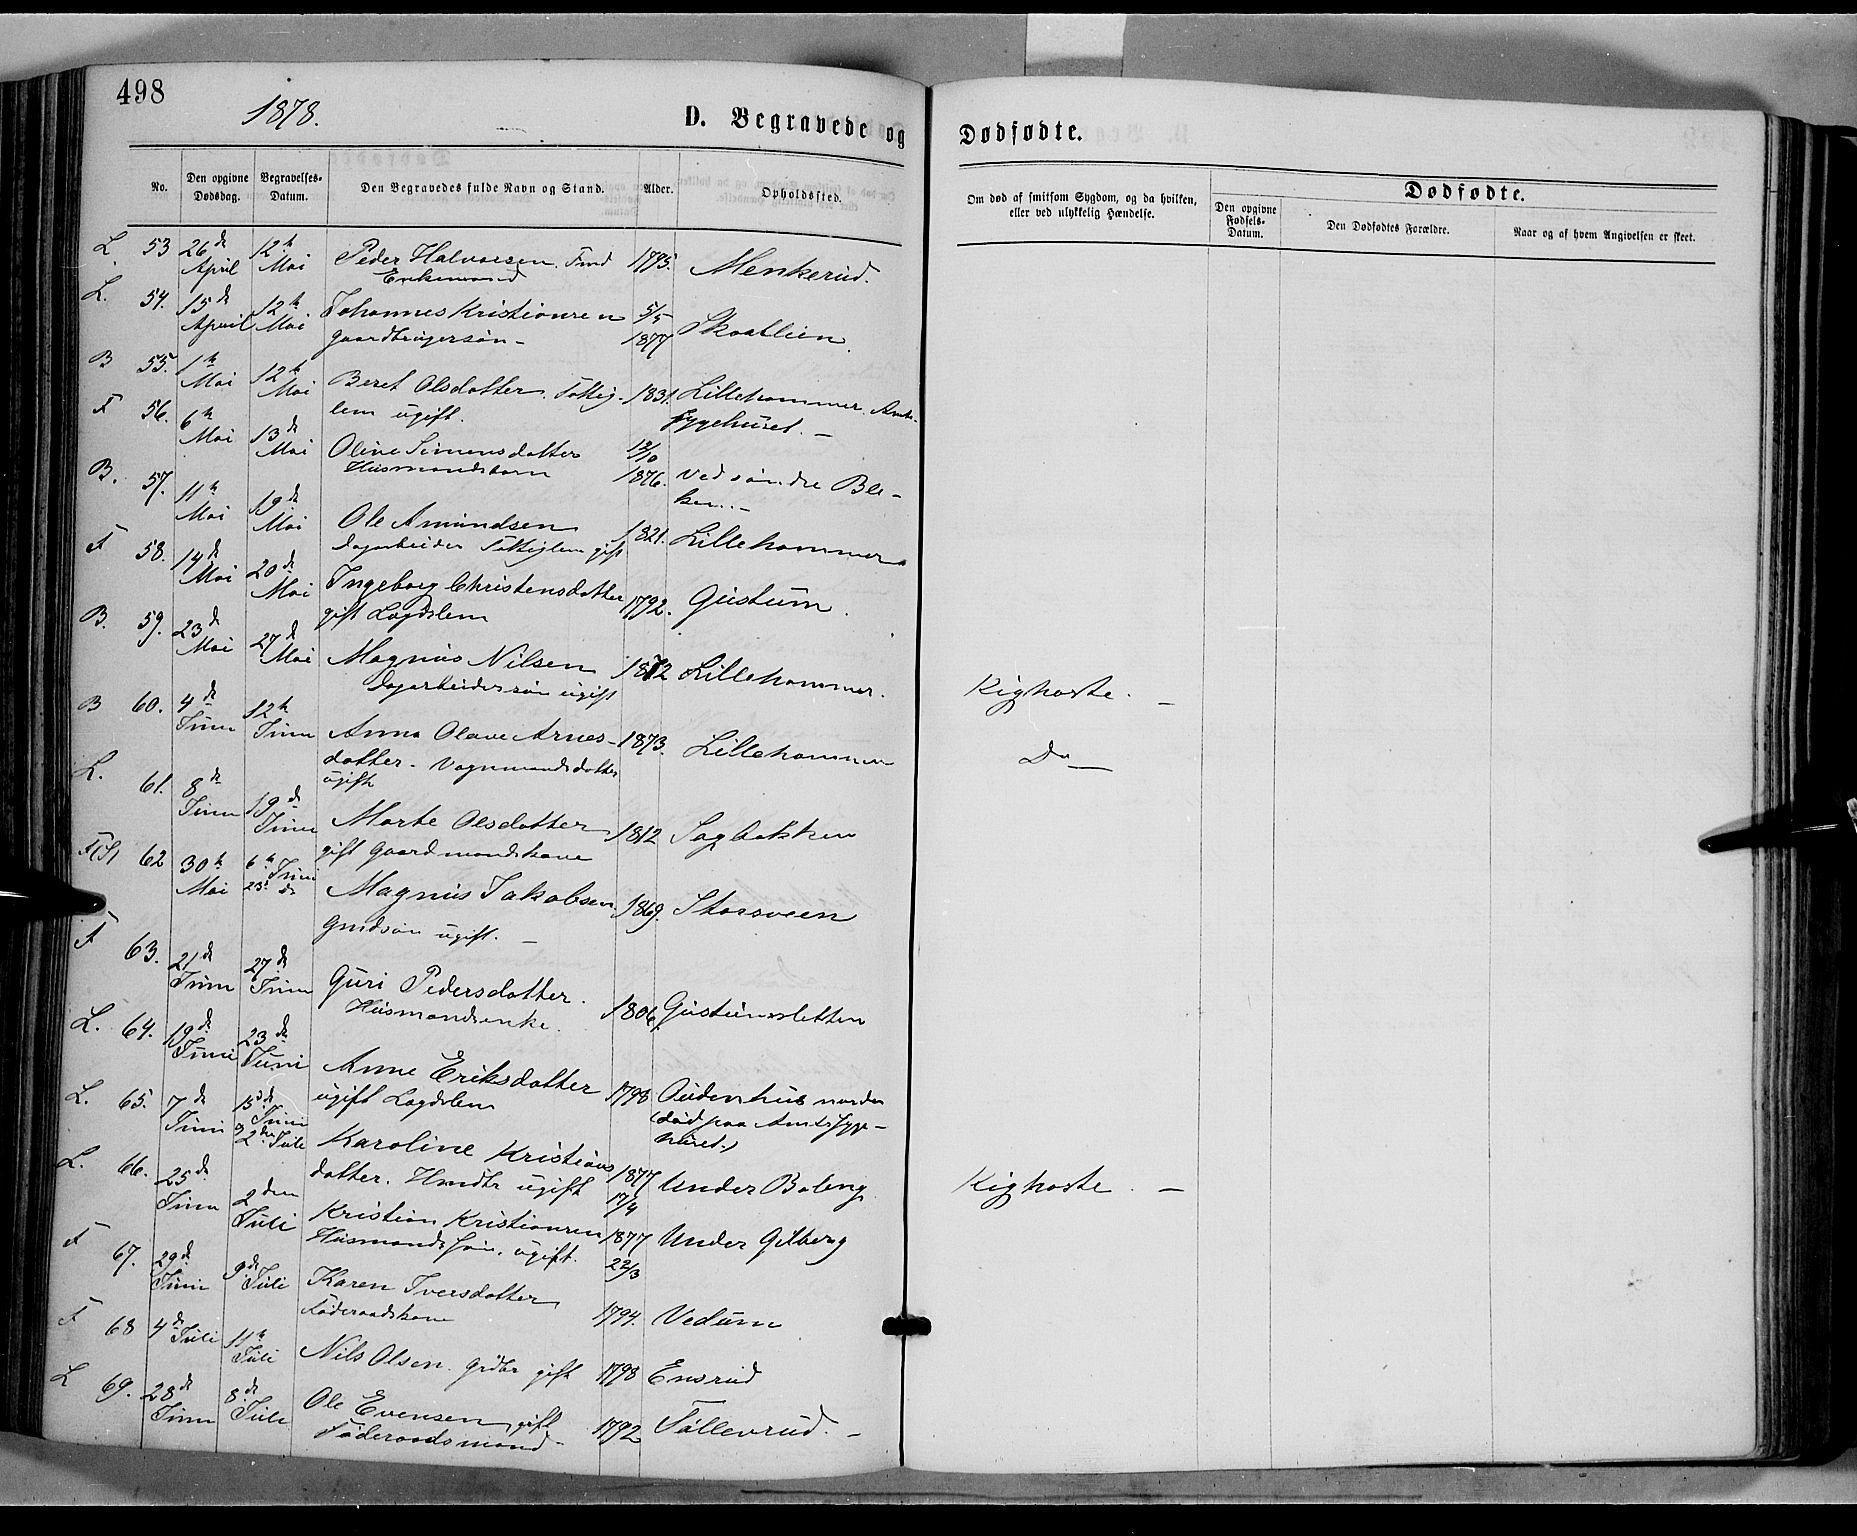 498
1878.
D. Begravede og
Dødfødte.
No.
Den opgivne Dødsdag.
Begravelses-Datum.
Den Begravedes fulde Navn og Stand.
Alder.
Opholdssted.
Om død af smitsom Sygdom, og da hvilken, eller ved ulykkelig Hændelse.
Dødfødte.
Den opgivne Fødsels-Datum.
Den Dødfødtes Forældre.
Naar og af hvem Angivelsen er skeet.
L. 53 26de April 12te Mai Peder Halvorsen. Fmd Enkemand 1795. Menkerud.
L. 54. 15de April 12te Mai Johannes Kristiansen gaardbrugersøn - 5/5 1877 Skaatlien.
B 55. 1te Mai 12te Mai Beret Olsdatter. Fattiglem ugift. 1831. Lillehammer. Amtssygehuset. -
F 56. 6te Mai 13de Mai Oline Simensdatter Husmandsbarn 12/10 1876. ved søndre Bleken. -
B. 57. 11te Mai 19de Mai Ole Amundsen Dagarbeider Fattiglem gift 1821. Lillehammer
F 58. 14de Mai 20de Mai Ingeborg Christensdatter gift Lægdslem 1792. Gustum.
B. 59. 23de Mai 27de Mai Magnus Nilsen Dagarbeidersøn ugift 1872 Lillehammer. Kighoste. -
B 60. 4de Juni 12te Juni Anna Olave Arnesdatter. Vognmandsdatter ugift 1873. Lillehammer Do
L. 61. 8de Juni 19de Juni Marte Olsdatter gift Gaardmandskone 1812 Sagbakken
F(S) 62 30te Mai 6te Juni 23de do Magnus Jakobsen Gmdsøn ugift. - 1869. Storsveen
F 63. 21de Juni 27de Juni Guri Pedersdatter. Husmandsenke. 1806. Gustumsletten
L. 64. 19de Juni 23de Juni Anne Eriksdatter ugift Lægdslem 1798 Audenhus nordre (død paa Amtssygehuset.)
L. 65. 7de Juni 15de Juni og 2den Juli Karoline Kristiansdatter. Hmdtr ugift 1877 17/4 Under Boleng. Kighoste. -
L. 66. 25de Juni 2den Juli Kristian Kristiansen Husmandssøn, ugift. 1877 22/3 Under Gilberg
F 67. 29de Juni 9de Juli Karen Iversdatter Føderaadskone 1794. Vedum
F 68 4de Juli 11te Juli Nils Olsen. Grdbr gift 1798 Ensrud
L 69. 28de Juni 8de Juli Ole Evensen gift Føderaadsmand - 1792 Føllevrud. -